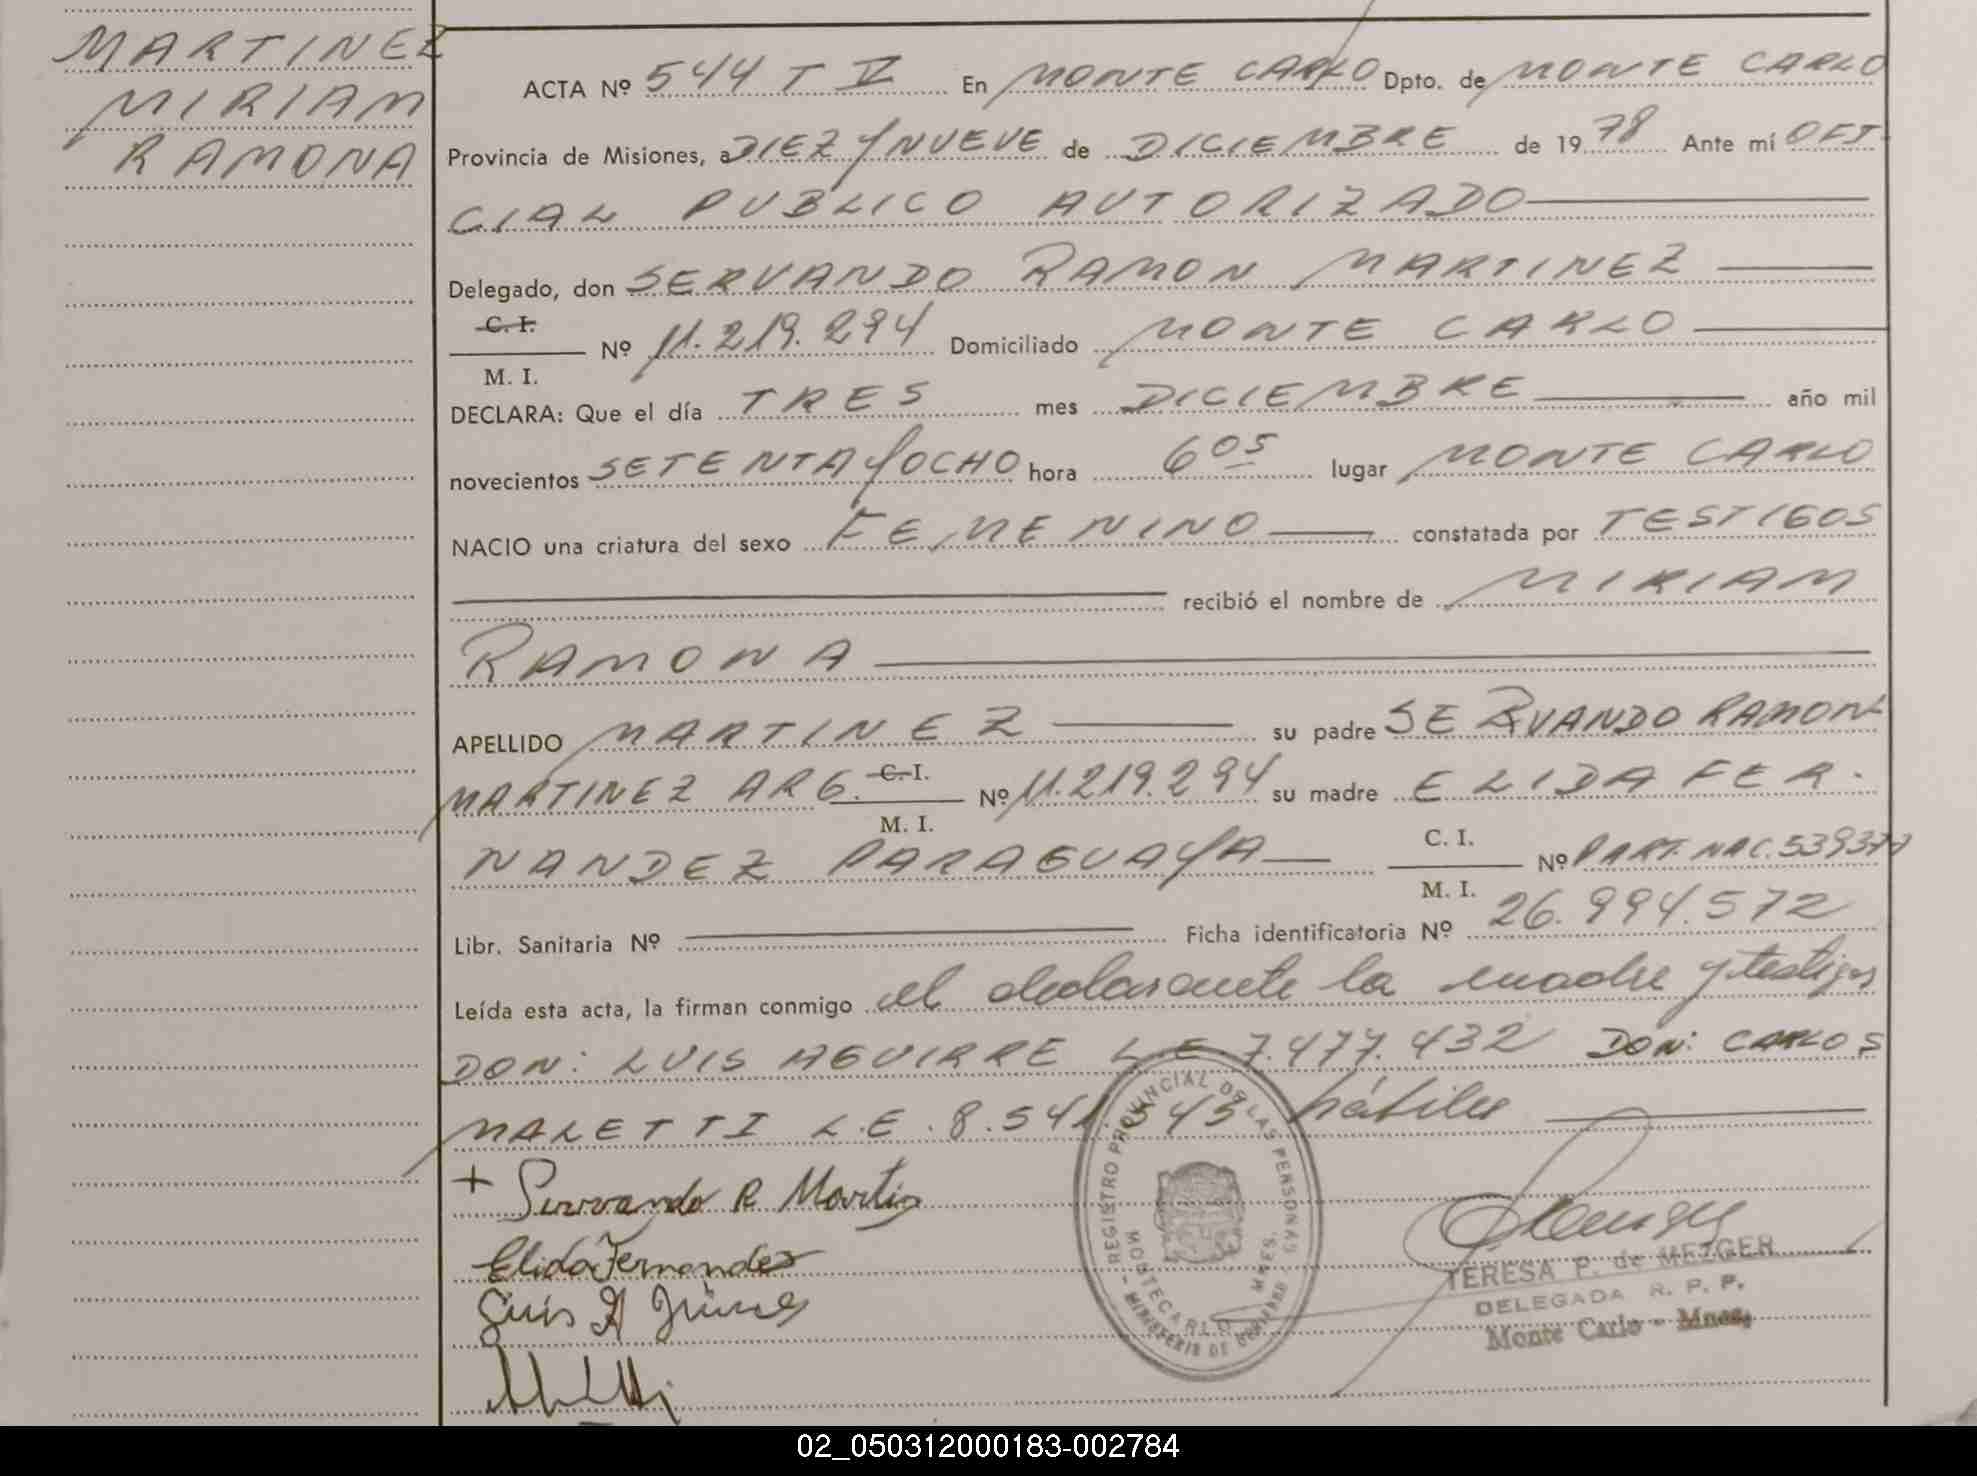 MARTINEZ
MIRIAM
RAMONA
ACTA Nº 544 T V En MONTE CARLO Dpto. de MONTE CARLO
Provincia de Misiones, a DIEZ Y NUEVE de DICIEMBRE de 1978 Ante mí OFI-
CIAL PUBLICO AUTORIZADO
Delegado, don SERVANDO RAMON MARTINEZ
C. I.
Nº 11.219.294 Domiciliado MONTE CARLO
M. I.
DECLARA: Que el día TRES mes DICIEMBRE año mil
novecientos SETENTA Y OCHO hora 6 05 lugar MONTE CARLO
NACIO una criatura del sexo FEMENINO constatada por TESTIGOS
recibió el nombre de MIRIAM
RAMONA
APELLIDO MARTINEZ su padre SERVANDO RAMON
MARTINEZ ARG. C. I. Nº 11.219.294 su madre ELIDA FER.
M. I.
NANDEZ PARAGUAYA C. I. Nº PART. NAC.
M. I.
Libr. Sanitaria Nº Ficha identificatoria Nº 26.994.572
Leída esta acta, la firman conmigo el declarante la madre y testigos
DON: LUIS AGUIRRE L.E. 7.477.432 DON: CARLOS
MALETTI L.E. 8.541.545 hábiles
+ Servando R Martin
Elida Fernandez
Luis A
REGISTRO PROVINCIAL DE LAS PERSONAS
MONTECARLO MNES.
MINISTERIO DE GOBIERNO
TERESA P. de MEZGER
DELEGADA R. P. P.
Monte Carlo - Mnes.
02_050312000183-002784